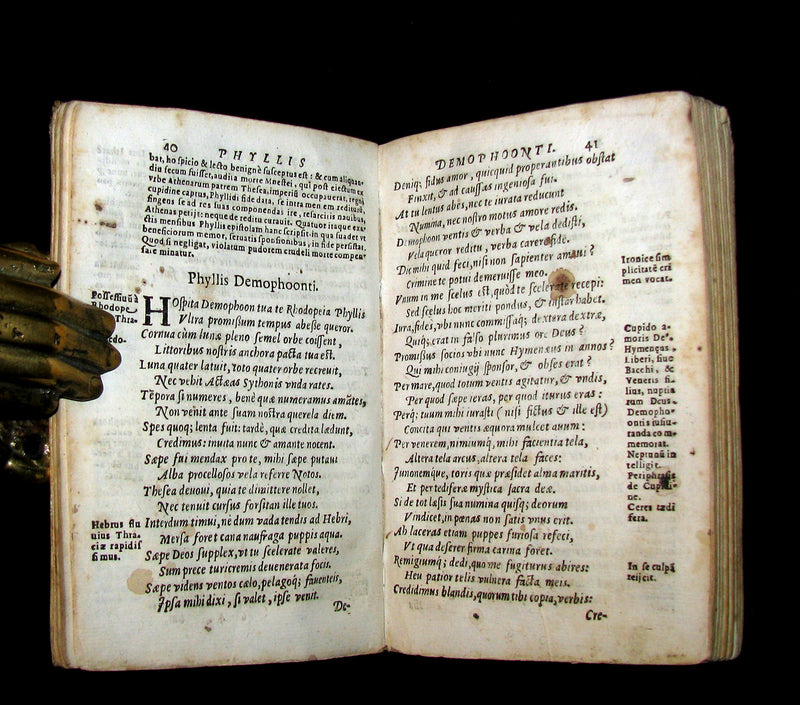 40 PHYLLIS
bat, hospicio & lecto benignè susceptus est: & cum aliquan-
diu secum fuisset, audita morte Mnestei, qui post eiectum ex
vrbe Athenarum patrem Thesea, imperiū occupauerat, regni
cupidine captus, Phyllidi fide data, se intra mensem rediturū,
fingens se ad res suas componendas ire, refarciris nauibus,
Athenas petijt: neque de reditu curauit. Quatuor itaque exa-
ctis mensibus Phyllis epistolam hanc scripsit: in qua suadet vt
beneficiorum memor, seruatis sponsionibus, in fide persistat.
Quod si negligat, violatum pudorem crudeli morte compen-
sare minatur.
Phyllis Demophoonti.
Possessiuū à
Rhodope
Thra-
HOspita Demophoon tua te Rhodopeia Phyllis
Vltra promissum tempus abesse queror.
Cornua cùm lunæ pleno semel orbe coissent,
Littoribus nostris anchora pacta tua est.
Luna quater latuit, toto quater orbe recreuit,
Nec vehit Actæas Sythonis vnda rates.
Tēpora si numeres, benè quæ numeramus amātes,
Non venit ante suam nostra querela diem.
Spes quoq; lenta fuit: tardè, quæ credita lædunt,
Credimus: inuita nunc & amante nocent.
Sæpe fui mendax pro te, mihi sæpe putaui
Alba procellosos vela referre Notos.
Thesea deuoui, quia te dimittere nollet,
Nec tenuit cursus forsitan ille tuos.
Hebrus flu
uius Thra
ciæ rapidis
simus.
Interdum timui, nè dum vada tendis ad Hebri,
Mersa foret cana naufraga puppis aqua.
Sæpe Deos supplex, vt tu scelerate valeres,
Sum prece turicremis deuenerata focis.
Sæpe videns ventos cælo, pelagoq; fauenteis,
Ipsa mihi dixi, si valet, ipse venit.
De-
DEMOPHOONTI. 41
Deniq; fidus amor, quicquid properantibus obstat
Finxit, & ad caussas ingeniosa fui.
At tu lentus abes, nec te iurata reducunt
Numina, nec nostro motus amore redis.
Demophoon ventis & verba & vela dedisti,
Vela queror reditu, verba carere fide.
Dic mihi quid feci, nisi non sapienter amaui?
Crimine te potui demeruisse meo.
Ironicè sim
plicitatē cri
men vocat.
Vnum in me scelus est, quòd te scelerate recepi:
Sed scelus hoc meriti pondus, & instar habet.
Iura, fides, vbi nunc commissaq; dextera dextræ,
Quiq; erat in falso plurimus ore Deus?
Promissus socios vbi nunc Hymenæus in annos?
Qui mihi coniugij sponsor, & obses erat?
Per mare, quod totum ventis agitatur, & vndis,
Per quod sæpe ieras, per quod iturus eras:
Perq; tuum mihi iurasti (nisi fictus & ille est)
Concita qui ventis æquora mulcet auum:
Per venerem, nimiumq; mihi facientia tela,
Altera tela arcus, altera tela faces:
Iunonemque, toris quæ præsidet alma maritis,
Et per tediferæ mystica sacra deæ.
Cupido a-
moris De°
Hymenęus,
Liberi, siue
Bacchi, &
Veneris fi-
lius, nuptia
rum Deus.
Demopho-
ontis iusiu-
randa com
memorat.
Neptunū in
telligit.
Periphrasis
de Cupidi-
ne.
Ceres tædi
fera.
Si de tot læsis sua numina quisq; deorum
Vindicet, in pœnas non satis vnus erit.
Ah laceras etiam puppes furiosa refeci,
Vt qua deserer firma carina foret.
Remigiumq; dedi, quo me fugiturus abires:
Heu patior telis vulnera facta meis.
In se culpā
reijcit.
Credidimus blandis, quorum tibi copia, verbis:
Cre-